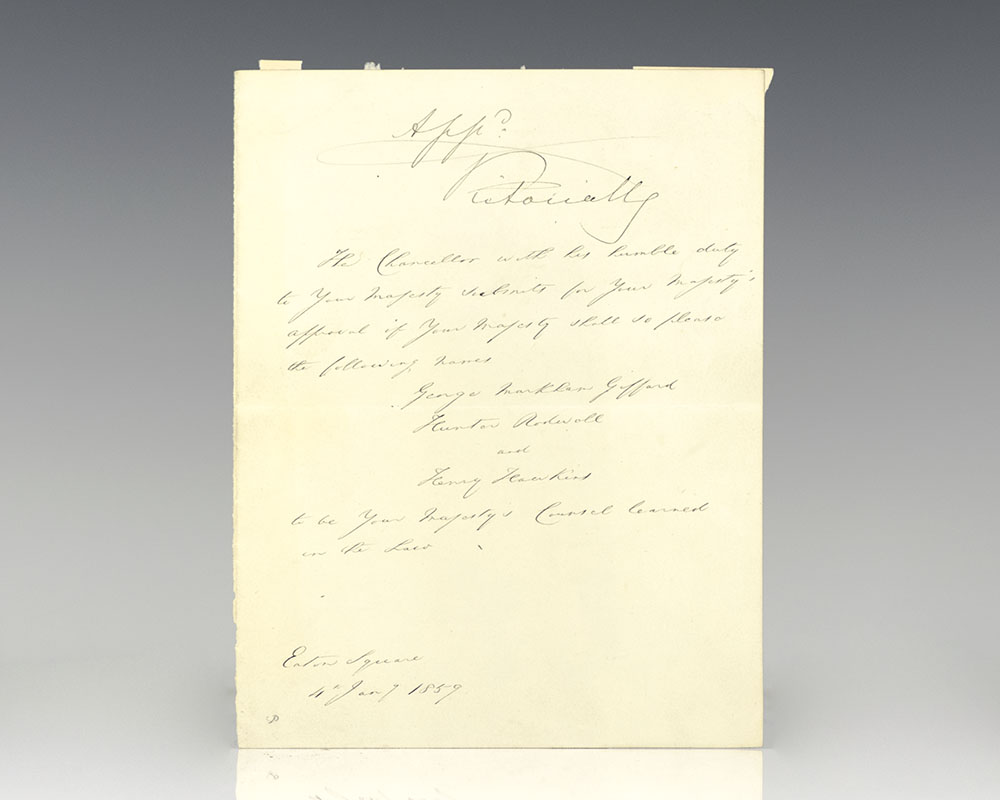 Appd
Victoria R
The Chancellor with his humble duty
to Your Majesty submits for Your Majesty's
approval if Your Majesty shall so please
the following names
George Markham Giffard
Hunter Rodwell
and
Henry Hawkins
to be Your Majesty's Counsel learned
in the Law
Eaton Square
4th Jany 1859